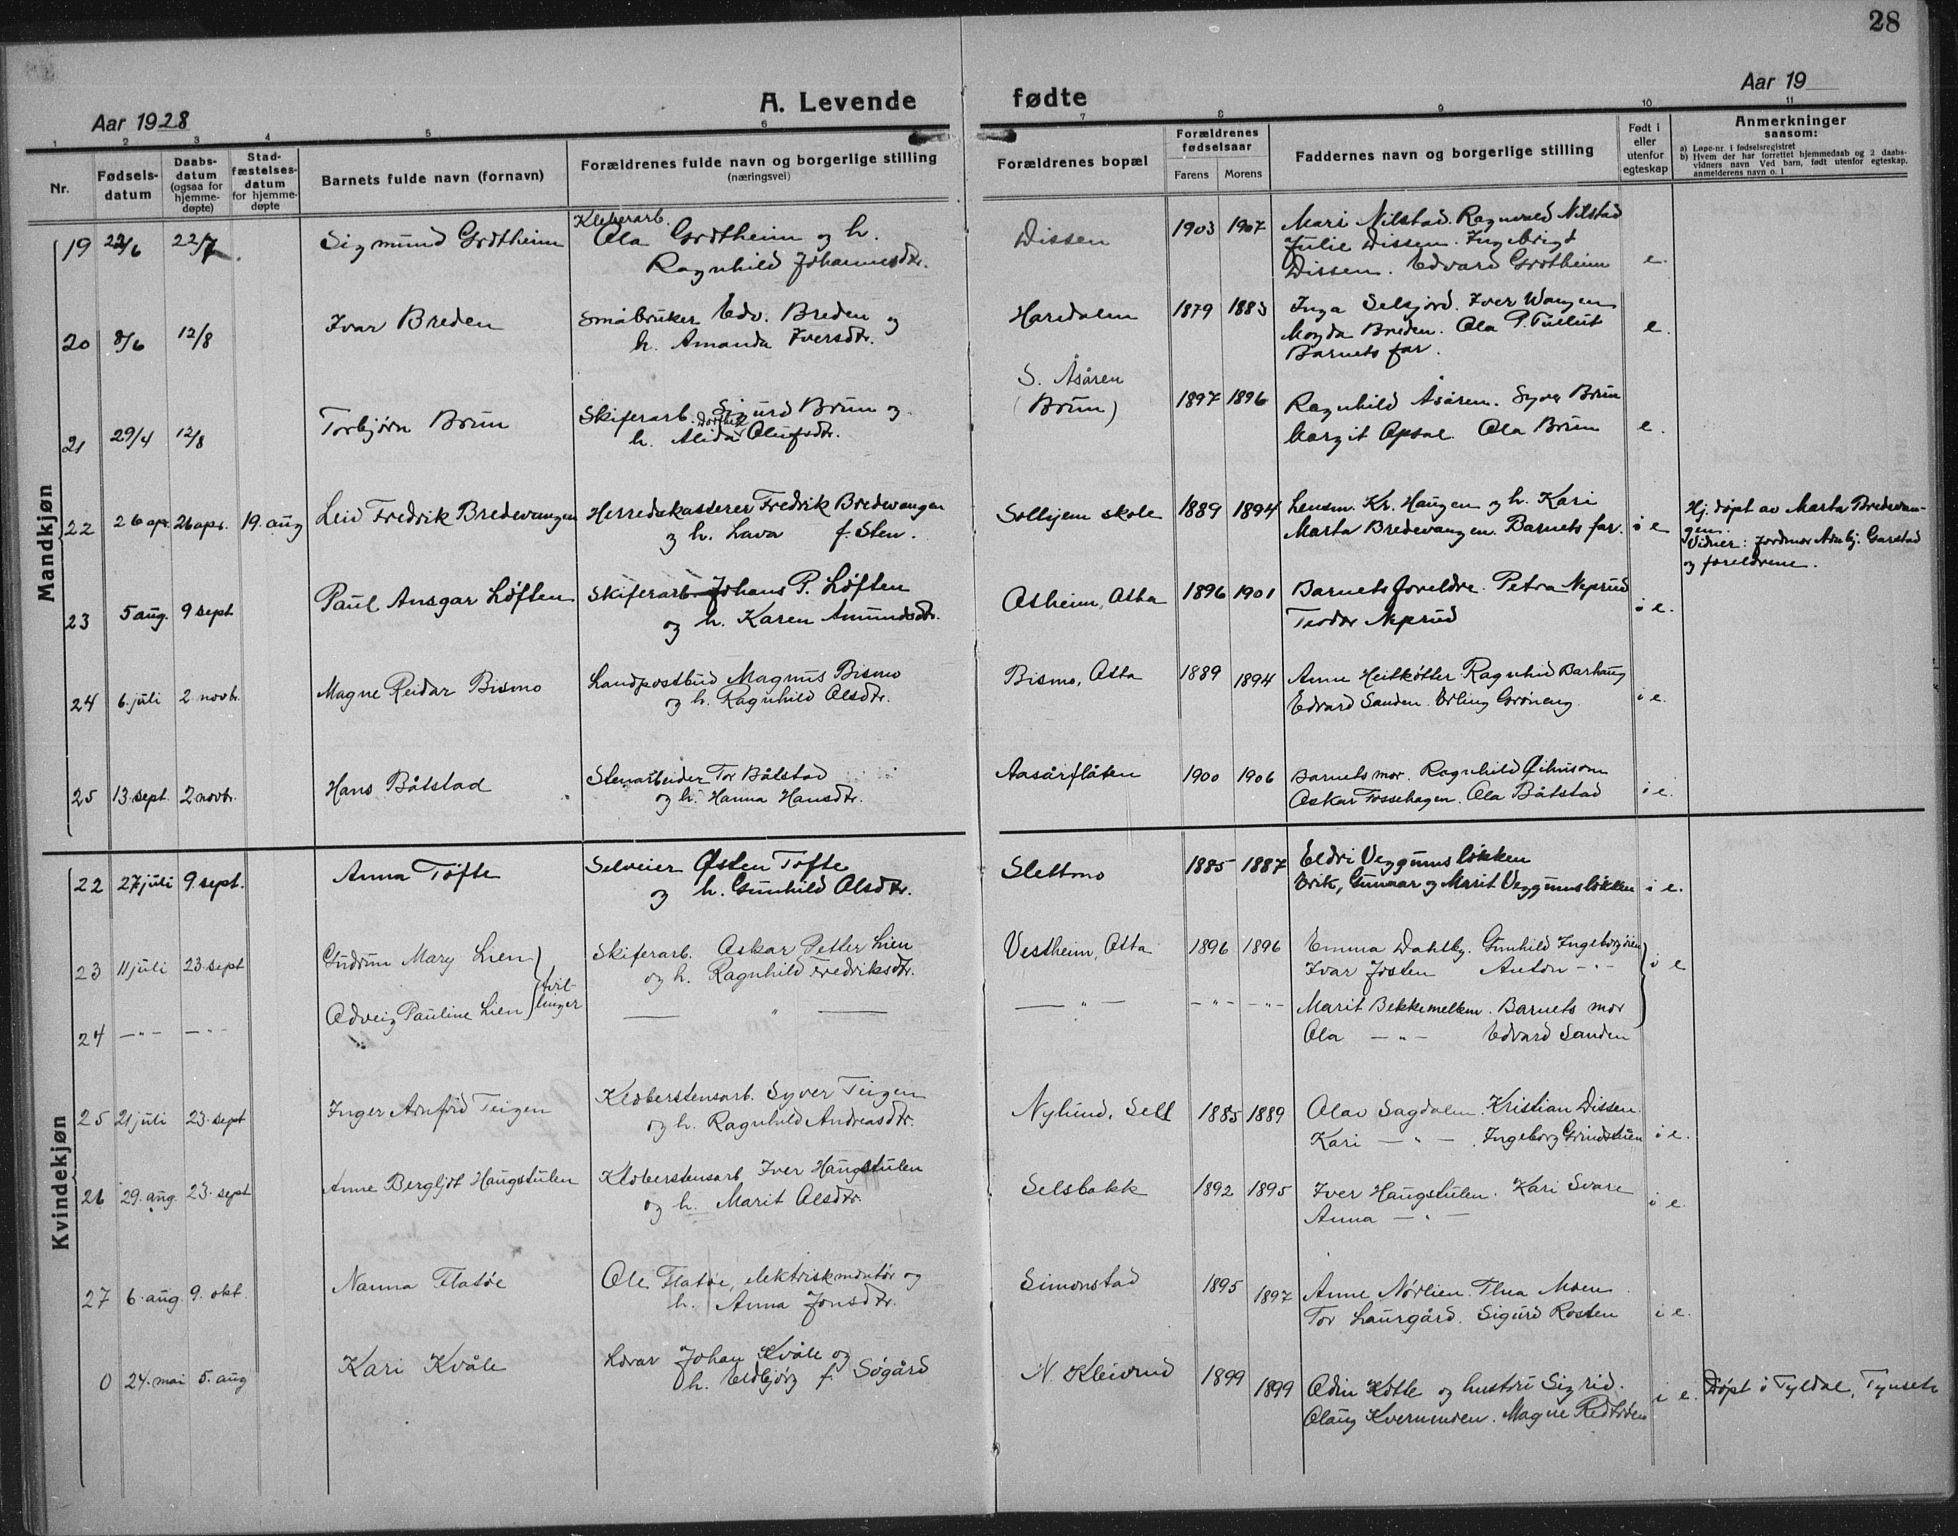 28
Aar 1928
A. Levende fødte
Aar 19
1 2 3 4 5 6 7 8 9 10 11
Nr.
Fødsels-
datum
Daabs-
datum
(ogsaa for
hjemme-
døpte)
Stad-
fæstelses-
datum
for hjemme-
døpte
Barnets fulde navn (fornavn)
Forældrenes fulde navn og borgerlige stilling
(næringsvei)
Forældrenes bopæl
Forældrenes
fødselsaar
Farens Morens
Faddernes navn og borgerlige stilling
Født i
eller
utenfor
egteskap
Anmerkninger
saasom:
a) Løpe-nr. i fødselsregistret
b) Hvem der har forrettet hjemmedaab og 2 daabs-
vidners navn Ved barn, født utenfor egteskap,
anmelderens navn o. l
Mandkjøn
19 22/6 22/7 Sigmund Grøtheim
Kleberarb.
Ola Grøtheim og h.
Ragnhild Johannesdtr.
Dissen 1903 1907
Mari Nilstad. Ragnvald Nilstad
Julie Dissen. Ingebrigt
Dissen. Edvard Grøtheim e.
20 8/6 12/8 Ivar Breden
Småbruker Edv. Breden og
h. Amanda Iversdtr.
Haredalen 1879 1883
Inga Selsjord. Iver Wangen
Magda Breden. Ola P.
Barnets far. e.
21 29/4 12/8 Torbjørn Brun
Skiferarb. Sigurd Brun og
h. Alida Dorthea Olufsdtr.
S. Åsåren
(Brun) 1897 1896
Ragnhild Åsåren. Syver Brun
Margit Opsal. Ola Brun e.
22 26 apr. 26 apr. 19. aug Leiv Fredrik Bredevangen
Herredskasserer Fredrik Bredevangen
og h. Lava f. Sten.
Solhjem skole 1889 1894
Lensm. Kr. Haugen og h. Kari
Marta Bredevangen. Barnets far. i e
Hj. døpt av Marta Bredevan-
gen.
Vidner: Jordmor Garstad
og foreldrene.
23 5 aug. 9 sept Paul Ansgar Løften
Skiferarb. Johans P. Løften
og h. Karen Amundsdtr.
Asheim, Otta 1896 1901
Barnets foreldre. Petra Neprud
Teodor Neprud i e.
24 6. juli 2. novbr. Magne Reidar Bismo
Landpostbud Magnus Bismo
og h. Ragnhild Olsdtr.
Bismo, Otta 1889 1894
Anne Heitkøtter. Ragnhild Barhaug
Edvard Sanden. Erling Grøneng. i e.
25 13. sept. 2 novbr. Hans Båtstad
Stenarbeider Tor Båtstad
og h. Hanna Hansdtr.
Aasårflåten 1900 1906
Barnets mor. Ragnhild
Oskar Fossehagen. Ola Båtstad i e.
Kvindekjøn
22 27 juli 9. sept. Anna Tofte
Selveier Østen Tofte
og h. Gunhild Olsdtr.
Slettmo 1885 1887
Eldri Veggumsløkken
Erik, Gunnar og Marit Veggumsløkken i e.
23 11 juli 23. sept Gudrun Mary Lien
Skiferarb. Oskar Petter Lien
og h. Ragnhild Fredriksdtr.
Vestheim, Otta 1896 1896
Emma Dahlby. Gunhild
Ivar Josten Anton - " - i e
24 - " - - " - Odveig Pauline Lien tvil-
linger
— " —
— " — - " - - " -
Marit Bekkemellem. Barnets mor
Ola - " - Edvard Sanden
25 21 juli 23. sept Inger Arnfrid Teigen
Kleberstensarb. Syver Teigen
og h. Ragnhild Andreasdtr.
Nylund, Sell 1885 1889
Olav Sagdalen. Kristian Dissen.
Kari - " - . Ingeborg Grindstuen i e.
26 29. aug. 23. sept Anne Bergljot Haugstulen
Kleberstensarb Iver Haugstulen
og h. Marit Olsdtr.
Selsbakk 1892 1895
Iver Haugstulen. Kari Svare
Anna - " - i e.
27 6. aug. 9. okt Nanna Flatøe
Ole Flatøe, elektriskmontør og
h. Anna Jonsdtr.
Simonstad 1895 1897
Anne Nørlien. Thea Moen.
Tor Laurgård. Sigurd Rosten i e.
0 24. mai 5. aug Kari Kvåle
Lærer Johan Kvåle og
h. Eldbjørg f. Søgård
N. Kleivrud 1899 1899
Odin Hotte og hustru Sigrid.
Olaug Kvernmoen. Magne i e.
Døpt i Tyldal, Tynset